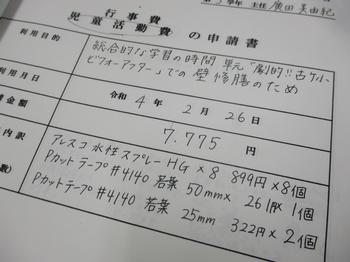 第3学年 主任 廣田 美由紀
行事費
児童活動費 の申請書
利用目的
総合的な学習の時間 単元"劇的!!古ケ小
ビフォーアフター"での壁修膳のため
利用月日
令和 4 年 2 月 26 日
請金額
7.775 円
内訳
アレスコ 水性スプレー HG × 8 899円×8個
Pカットテープ #4140 若葉 50mm× 261円× 1個
Pカットテープ #4140 若葉 25mm 322円× 2個
数)